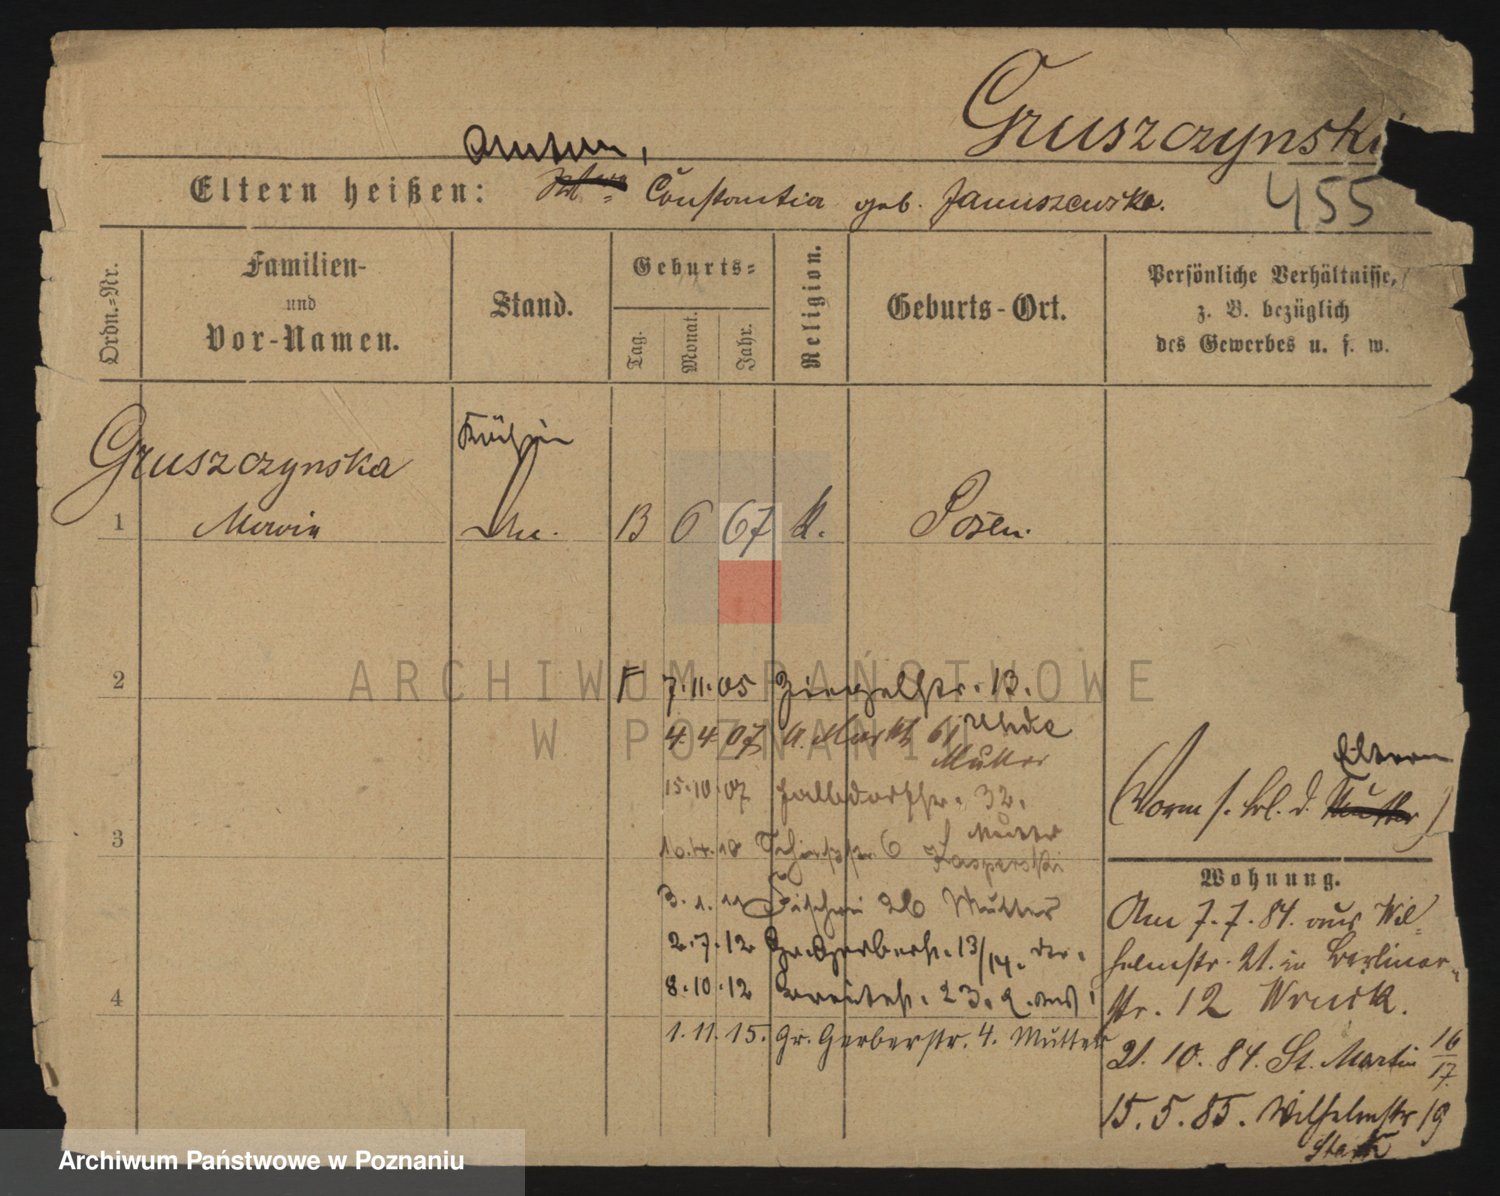 Gruszczynski
Anton,
Eltern heißen: Constantia geb. Januszewska.
455
Ordn.-Nr.
Familien-
und
Vor-Namen.
Stand.
Geburts-
Tag.
Monat.
Jahr.
Religion.
Geburts-Ort.
Persönliche Verhältnisse,
z. B. bezüglich
des Gewerbes u. s. w.
Gruszczynska
Köchin
1 Maria 13 6 67 k. Posen.
2
F 7.11.05 Ziegelstr. 13.
4.4.07 A. Markt 61
Mutter
15.10.07 Halbdorfstr. 32.
Mutter
3
10.4.10 6 Kasperski
3.1.11 Fischerei 26 Mutter
2.7.12 Gr. Gerberstr. 13/14.
4
8.10.12 Breitestr. 23.
1.11.15. Gr. Gerberstr. 4. Mutter
Eltern
(Vorm s. bl. d. Mutter)
Wohnung.
Am 7.7.84. aus Wil-
helmstr. 21. in Berliner-
str. 12
21.10.84. St. Martin 16/17
15.5.85. Wilhelmstr 19
Stark
ARCHIWUM PAŃSTWOWE
W POZNANIU
Archiwum Państwowe w Poznaniu